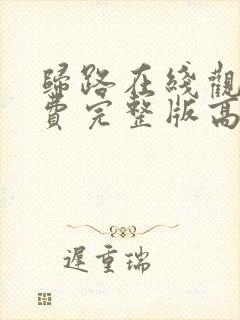 歸路在綫觀
費完整版高
遲重瑞